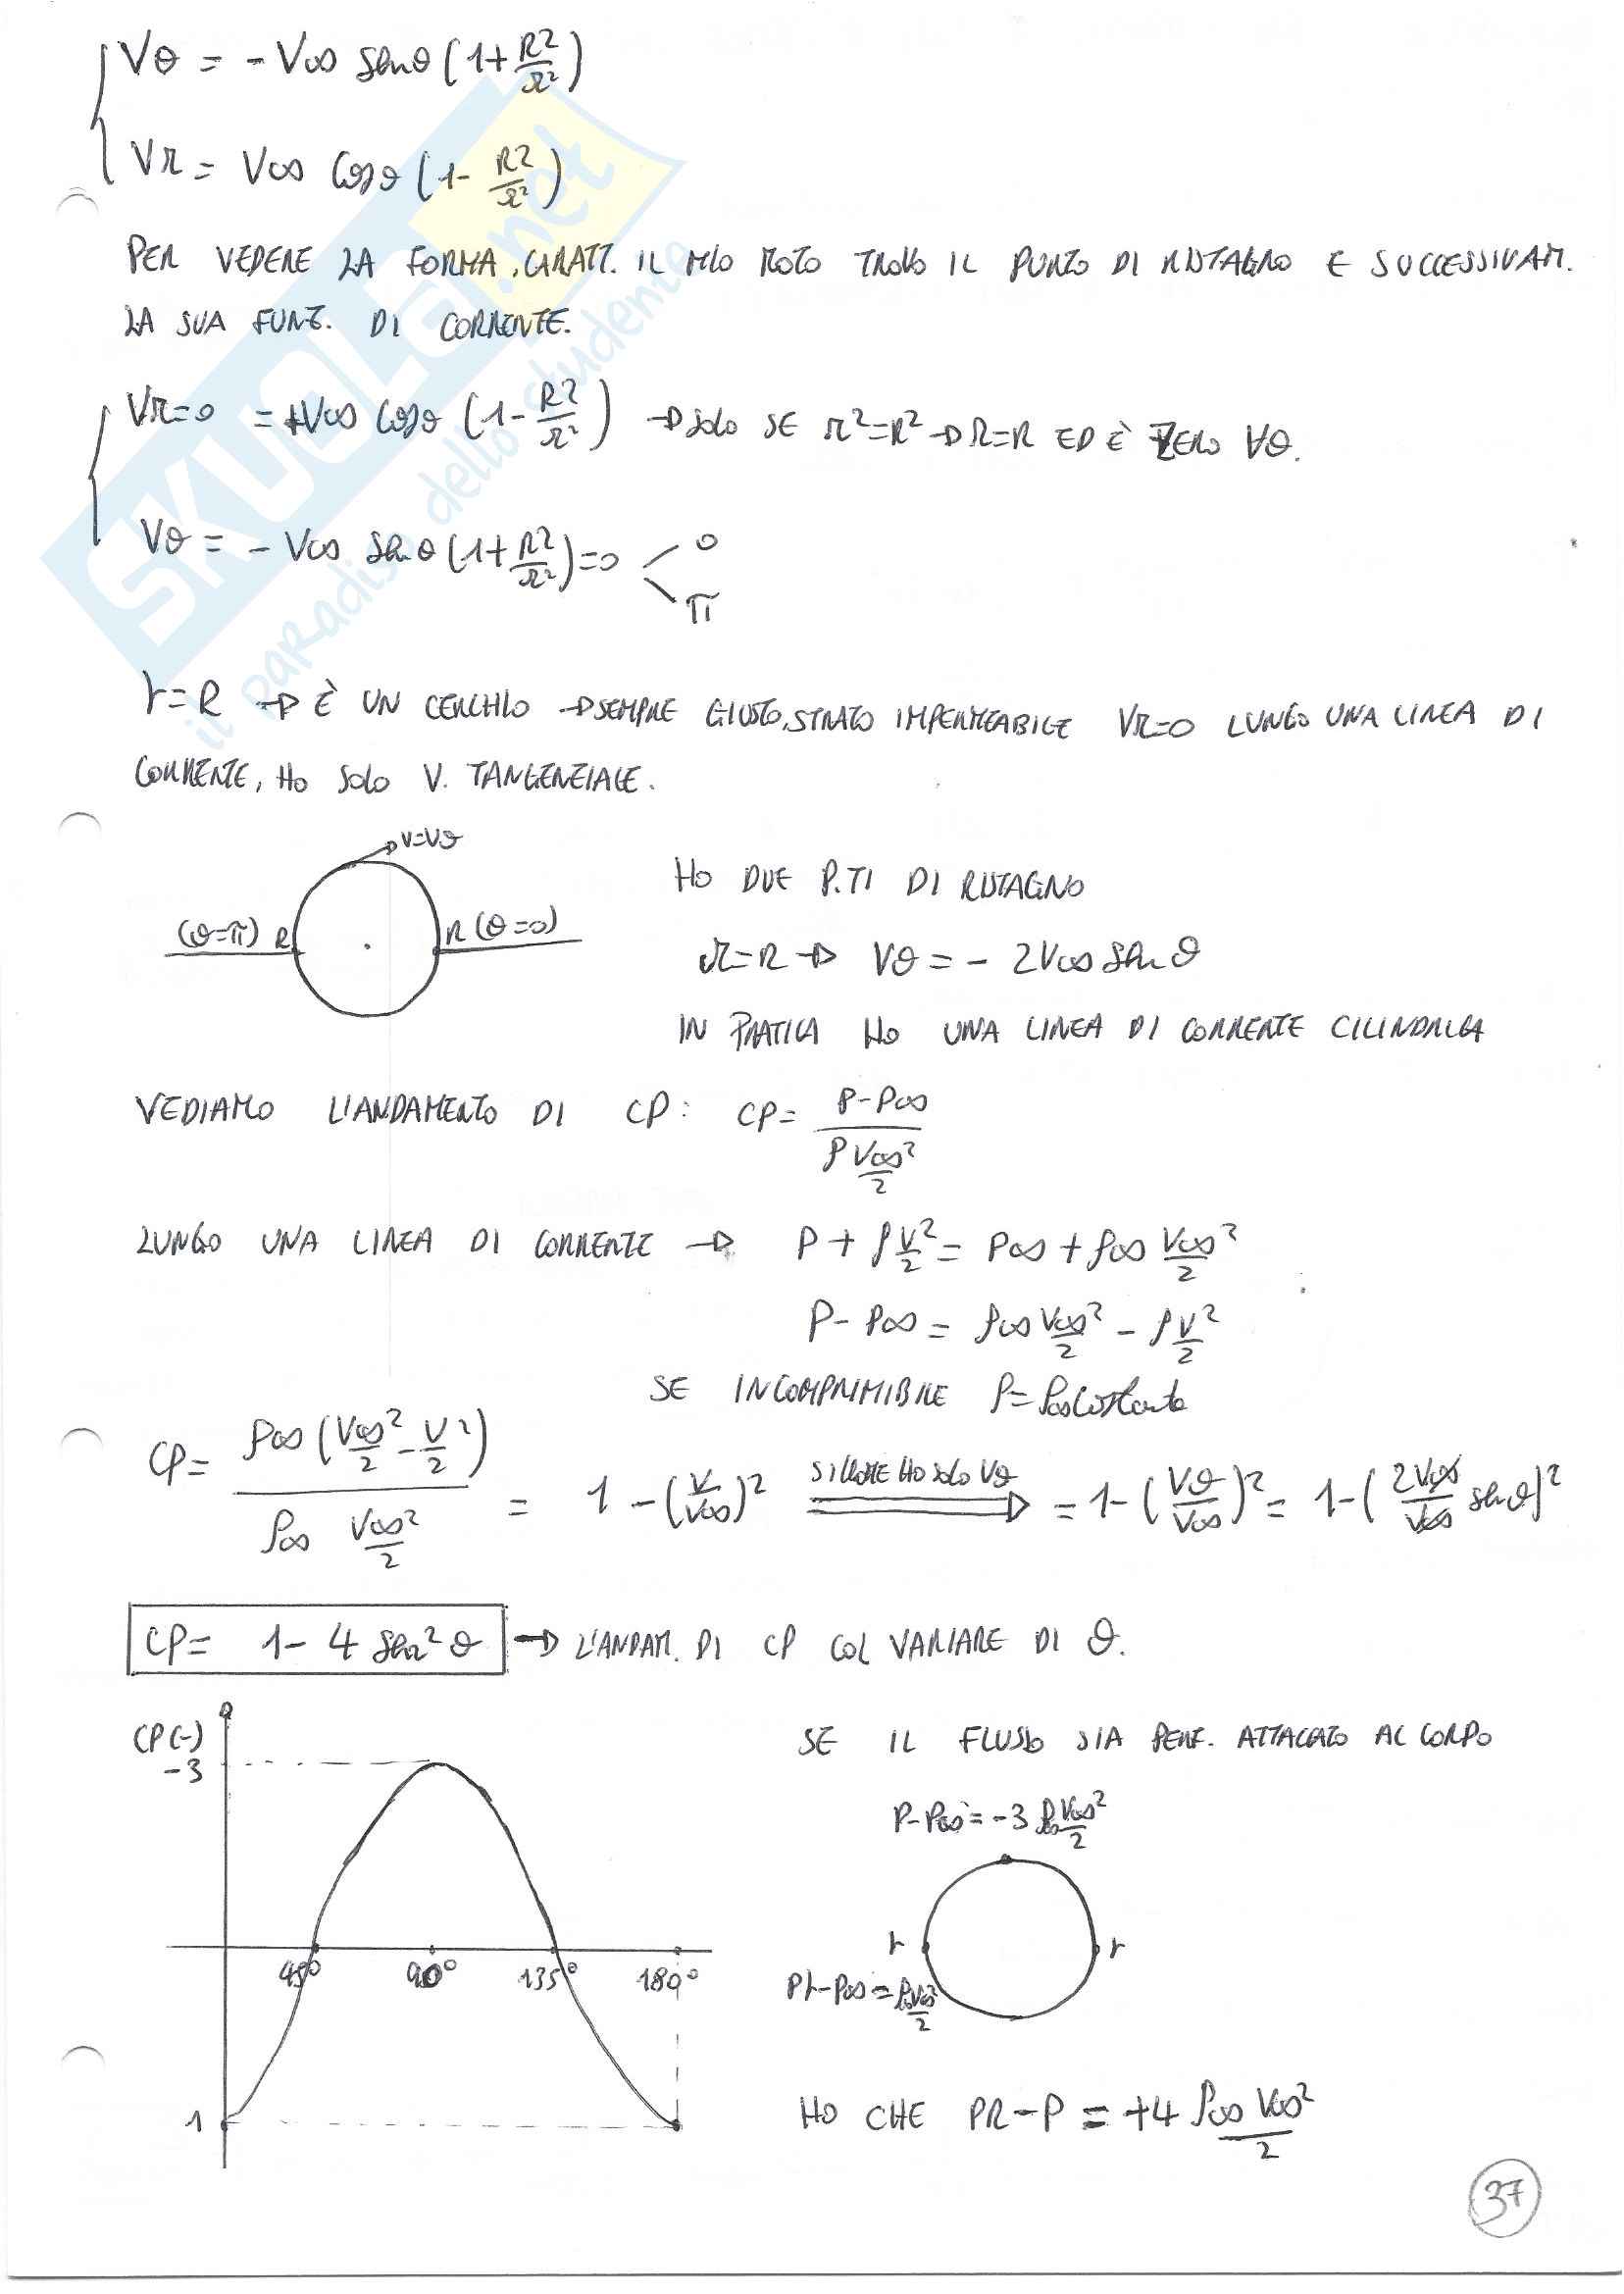 Vθ = - V∞ sen θ (1+ R²/r²)
Vr = V∞ cos θ (1- R²/r²)
PER VEDERE LA FORMA, CARATT. IL MIO MOTO TROVO IL PUNTO DI RISTAGNO E SUCCESSIVAM.
LA SUA FUNZ. DI CORRENTE.
Vr=0 = +V∞ cos θ (1- R²/r²) → solo SE r²=R² → r=R ED È ZERO ∀θ.
Vθ = - V∞ sen θ (1+ R²/r²)=0 < 0
π
r=R → È UN CERCHIO → SEMPRE GIUSTO, STRATO IMPERMEABILE Vr=0 LUNGO UNA LINEA DI
CORRENTE, HO SOLO V. TANGENZIALE.
V=Vθ
(θ=π) R
R (θ=0)
HO DUE P.TI DI RISTAGNO
r=R → Vθ = - 2V∞ sen θ
IN PRATICA HO UNA LINEA DI CORRENTE CILINDRICA
VEDIAMO L'ANDAMENTO DI CP: CP= (P-P∞)/(ρ V∞²/2)
LUNGO UNA LINEA DI CORRENTE → P + ρ V²/2 = P∞ + ρ∞ V∞²/2
P- P∞ = ρ∞ V∞²/2 - ρ V²/2
SE INCOMPRIMIBILE ρ=ρ∞ costante
CP= ρ∞ (V∞²/2 - V²/2) / (ρ∞ V∞²/2) = 1 - (V/V∞)² ⇒ = 1- (Vθ/V∞)² = 1- (2V∞/V∞ sen θ)²
HO SOLO Vθ
CP= 1- 4 sen² θ → L'ANDAM. DI CP COL VARIARE DI θ.
CP(-)
-3
45° 90° 135° 180°
1
SE IL FLUSSO SIA PERF. ATTACCATO AL CORPO
P-P∞ = -3 ρ∞ V∞²/2
r
r
Pr-P∞ = ρ∞V∞²/2
HO CHE PR-P = +4 ρ∞ V∞²/2
37
SKUOLA.net
il paradiso dello studente